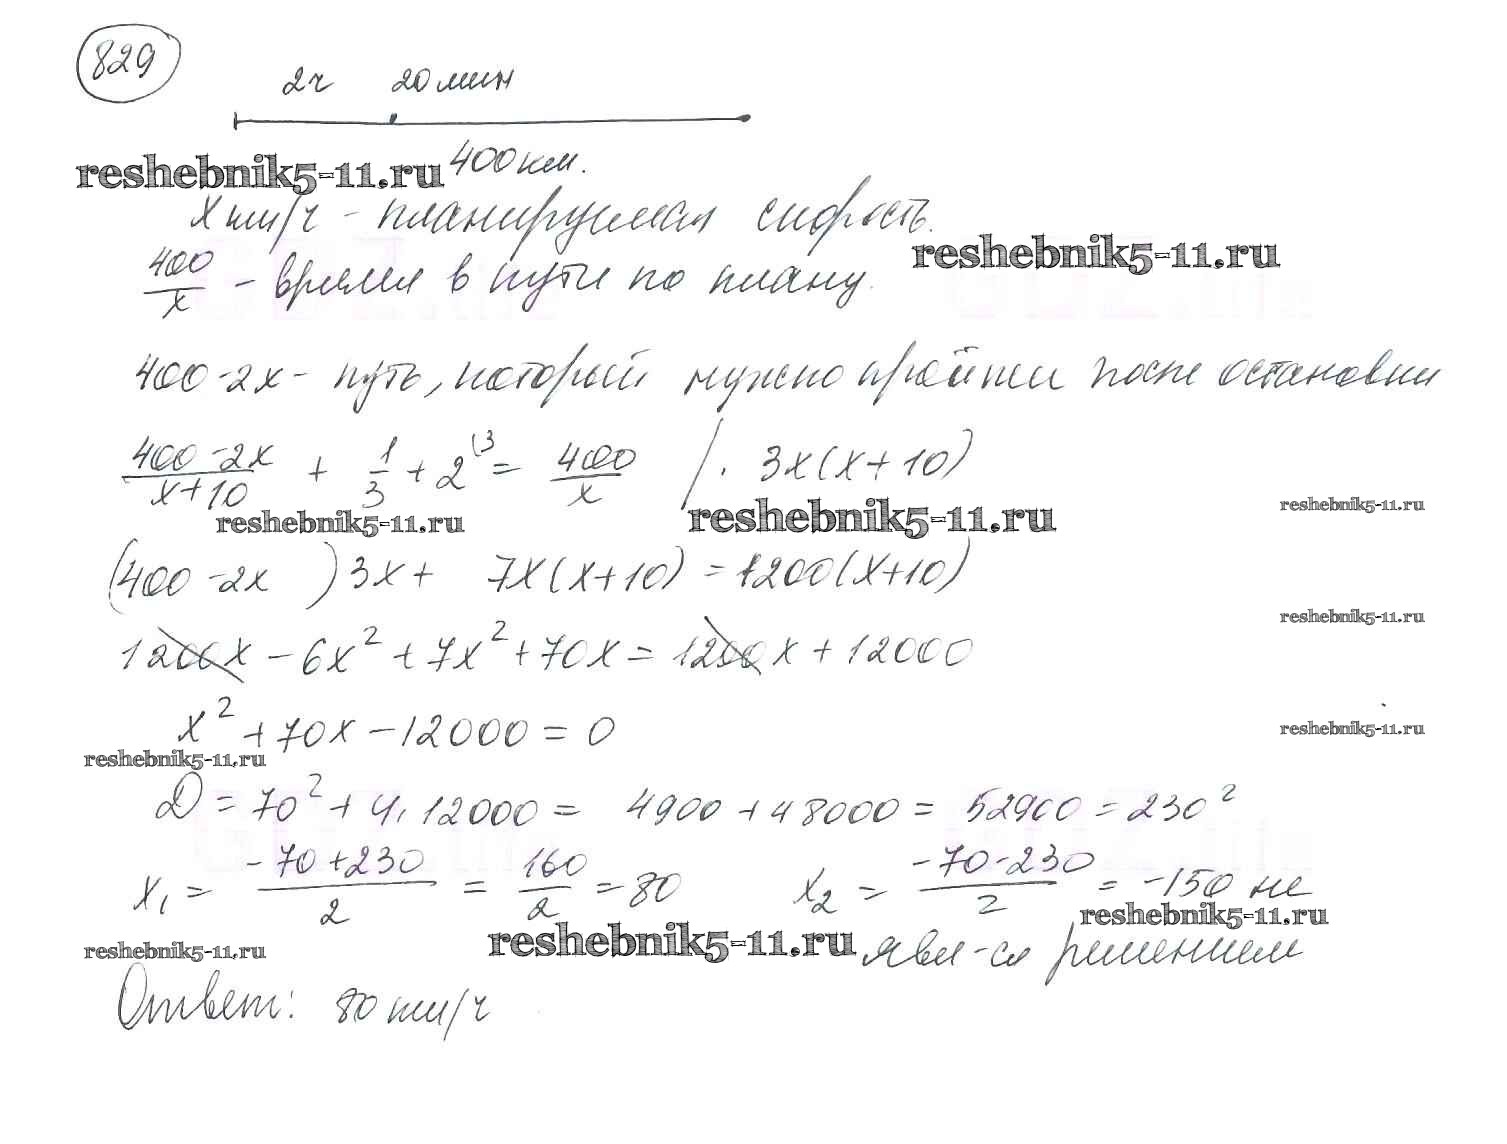 829
2ч 20 мин
400 км.
reshebnik5-11.ru
x км/ч - планируемая скорость.
reshebnik5-11.ru
400/x - время в пути по плану.
400-2x - путь, который нужно пройти после остановки
(400-2x)/(x+10) + 1/3 + 2^(3 = 400/x /· 3x(x+10)
reshebnik5-11.ru reshebnik5-11.ru reshebnik5-11.ru
(400-2x )3x + 7x(x+10) = 1200(x+10)
reshebnik5-11.ru
1200x - 6x² + 7x² + 70x = 1200x + 12000
x² + 70x - 12000 = 0
reshebnik5-11.ru
reshebnik5-11.ru
D = 70² + 4·12000 = 4900 + 48000 = 52900 = 230²
x₁ = (-70+230)/2 = 160/2 = 80 x₂ = (-70-230)/2 = -150 не
reshebnik5-11.ru
reshebnik5-11.ru reshebnik5-11.ru явл-ся решением
Ответ: 80 км/ч